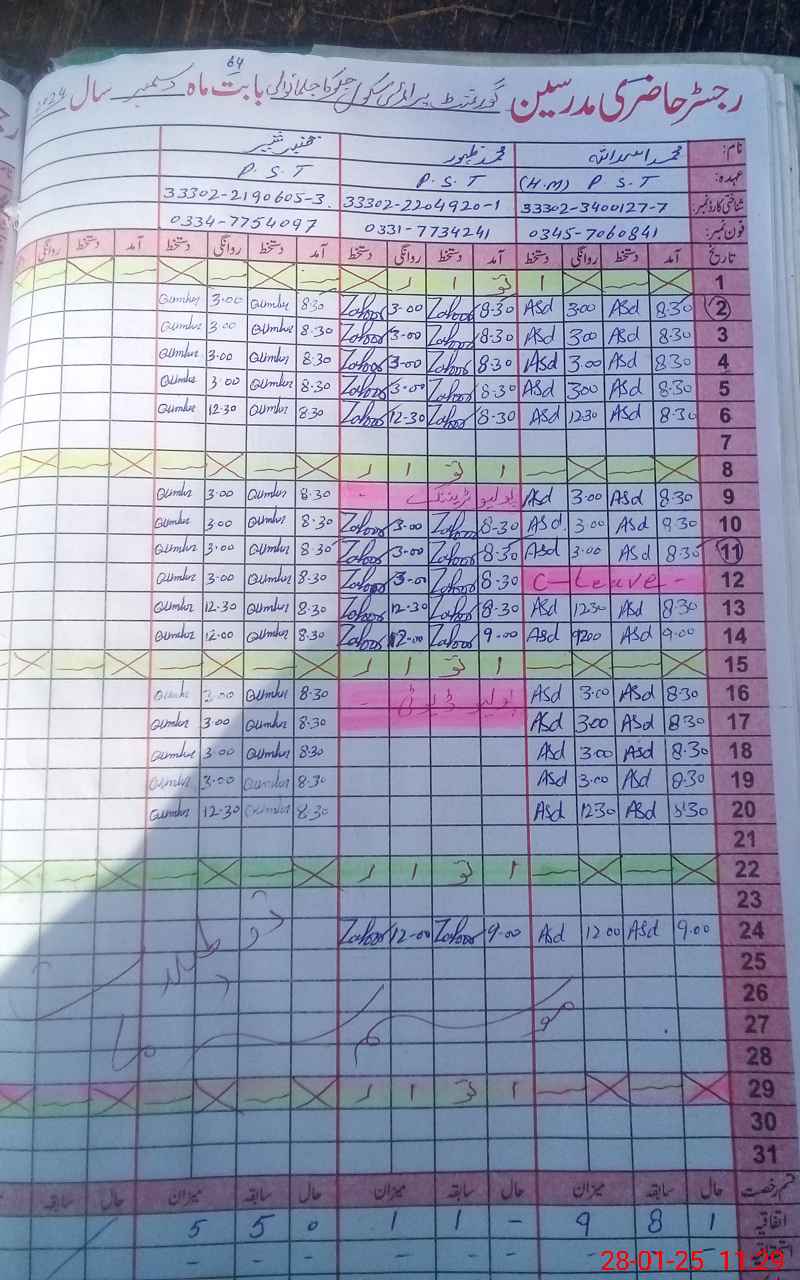 64
رجسٹر حاضری مدرسین گورنمنٹ پرائمری سکول بابت ماہ دسمبر سال 2024
نام: محمد اسد اللہ محمد ظہور
عہدہ: (H.M) P.S.T P.S.T P.S.T
شناختی کارڈ نمبر: 33302-3400127-7 33302-2204920-1 33302-2190605-3
فون نمبر: 0345-7060841 0331-7734241 0334-7754097
تاریخ آمد دستخط روانگی دستخط آمد دستخط روانگی دستخط آمد دستخط روانگی دستخط آمد دستخط روانگی
1 ا تو ا ر
2 8.30 Asd 3.00 Asd 8.30 Zahoor 3.00 Zahoor 8.30 Qumbr 3.00 Qumbr
3 8.30 Asd 3.00 Asd 8.30 Zahoor 3.00 Zahoor 8.30 Qumbr 3.00 Qumbr
4 8.30 Asd 3.00 Asd 8.30 Zahoor 3.00 Zahoor 8.30 Qumbr 3.00 Qumbr
5 8.30 Asd 3.00 Asd 8.30 Zahoor 3.00 Zahoor 8.30 Qumbr 3.00 Qumbr
6 8.30 Asd 12.30 Asd 8.30 Zahoor 12.30 Zahoor 8.30 Qumbr 12.30 Qumbr
7
8 ا تو ا ر
9 8.30 Asd 3.00 Asd پولیو ٹریننگ - 8.30 Qumbr 3.00 Qumbr
10 8.30 Asd 3.00 Asd 8.30 Zahoor 3.00 Zahoor 8.30 Qumbr 3.00 Qumbr
11 8.30 Asd 3.00 Asd 8.30 Zahoor 3.00 Zahoor 8.30 Qumbr 3.00 Qumbr
12 C-Leave - 8.30 Zahoor 3.00 Zahoor 8.30 Qumbr 3.00 Qumbr
13 8.30 Asd 12.30 Asd 8.30 Zahoor 12.30 Zahoor 8.30 Qumbr 12.30 Qumbr
14 9.00 Asd 12.00 Asd 9.00 Zahoor 12.00 Zahoor 8.30 Qumbr 12.00 Qumbr
15 ا تو ا ر
16 8.30 Asd 3.00 Asd پولیو ڈیوٹی - 8.30 Qumbr 3.00 Qumbr
17 8.30 Asd 3.00 Asd 8.30 Qumbr 3.00 Qumbr
18 8.30 Asd 3.00 Asd 8.30 Qumbr 3.00 Qumbr
19 8.30 Asd 3.00 Asd 8.30 Qumbr 3.00 Qumbr
20 8.30 Asd 12.30 Asd 8.30 Qumbr 12.30 Qumbr
21
22 ا تو ا ر
23
24 9.00 Asd 12.00 Asd 9.00 Zahoor 12.00 Zahoor
25
26
27
28
29 ا تو ا ر
30
31
قسم رخصت حال سابقہ میزان حال سابقہ میزان حال سابقہ میزان حال سابقہ
اتفاقیہ 1 8 9 - 1 1 0 5 5
- - - - - - - -
28-01-25 11:29